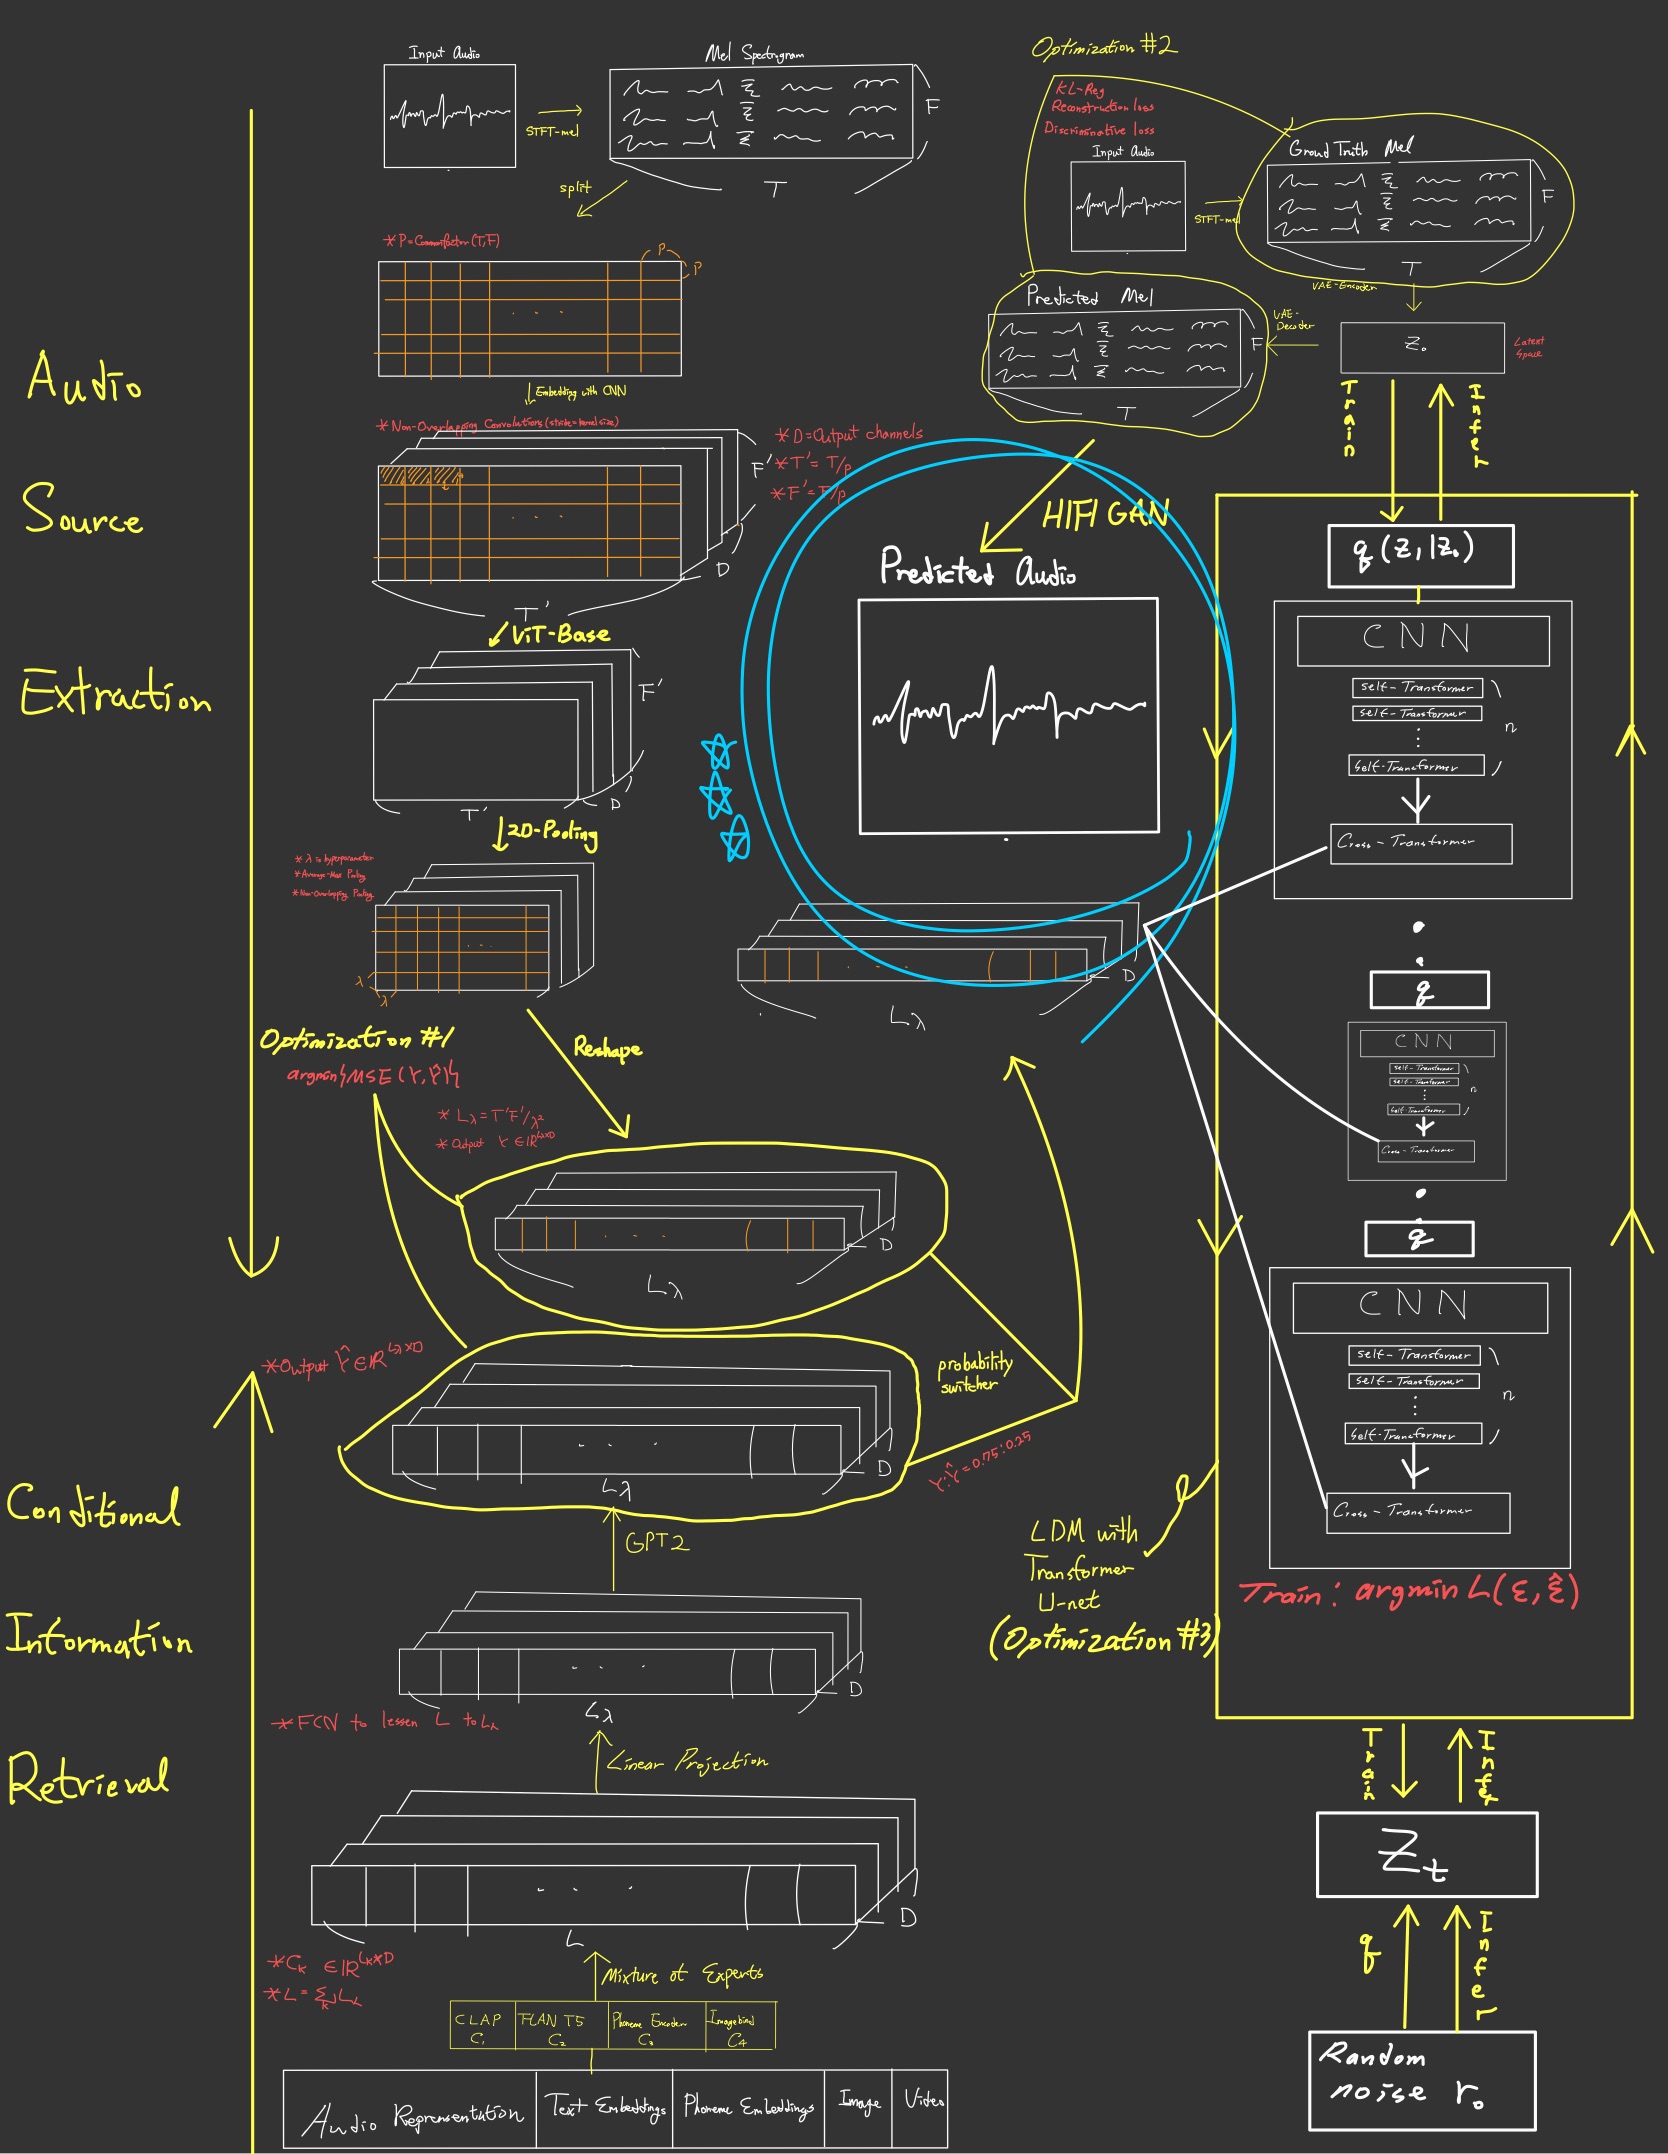 Input Audio
STFT-mel
Mel Spectrogram
F
T
split
*P=Commonfactor(T,F)
P
P
Embedding with CNN
*Non-Overlapping Convolutions (stride=kernel size)
*D=Output channels
*T'=T/p
*F'=F/p
F'
D
T'
ViT-Base
F'
T'
D
2D-Pooling
*λ is hyperparameter
*Average-Max Pooling
*Non-Overlapping Pooling
λ
λ
Optimization #1
argmin{MSE(Y,Ŷ)}
Reshape
*Lλ=T'F'/λ²
*Output Y∈ℝ^Lλ×D
D
Lλ
*Output Ŷ∈ℝ^Lλ×D
D
Lλ
probability
switcher
Y:Ŷ=0.75:0.25
GPT2
D
Lλ
*FCN to lessen L to Lλ
Linear Projection
D
L
*Cₖ ∈ℝ^Lₖ×D
Mixture of Experts
CLAP
C₁
FLAN T5
C₂
Phoneme Encoder
C₃
Imagebind
C₄
Audio Representation
Text Embeddings
Phoneme Embeddings
Image
Video
Audio
Source
Extraction
Conditional
Information
Retrieval
Optimization #2
KL-Reg
Reconstruction loss
Discriminative loss
Input Audio
STFT-mel
Ground Truth Mel
F
T
VAE-Encoder
Z₀
Latent
Space
VAE-
Decoder
Predicted Mel
F
T
HIFI GAN
Predicted Audio
D
Lλ
Train
Infer
q(Z₁|Z₀)
CNN
self-Transformer
self-Transformer
self-Transformer
n
Cross-Transformer
q
CNN
self-Transformer
self-Transformer
self-Transformer
n
Cross-Transformer
q
CNN
self-Transformer
self-Transformer
self-Transformer
n
Cross-Transformer
LDM with
Transformer
U-net
(Optimization #3)
Train: argmin L(ε,ε̂)
Train
Infer
Zt
q
Infer
Random
noise r₀